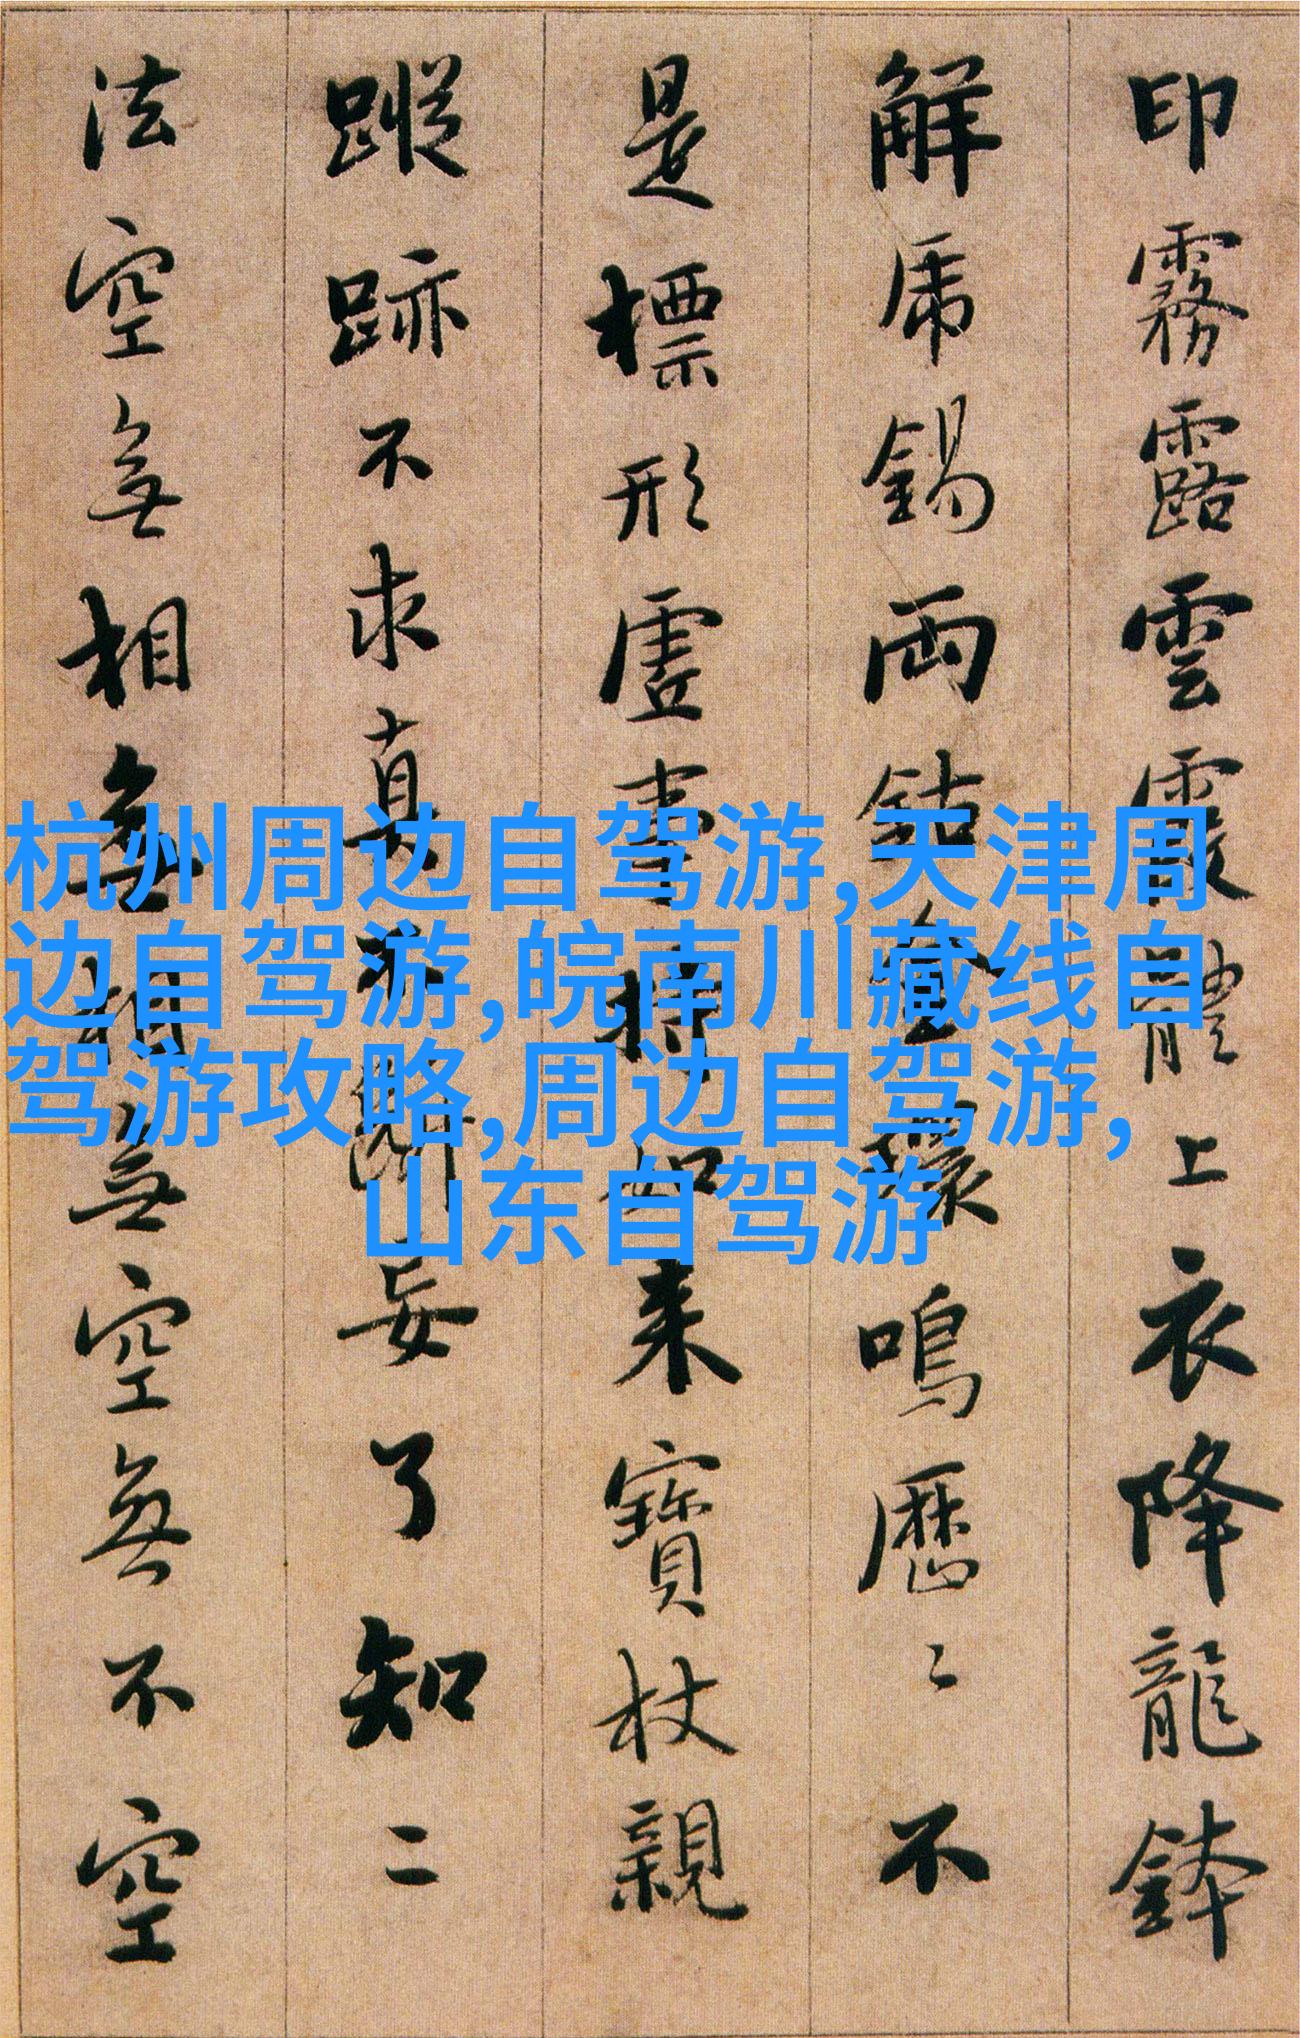 印霧露雲霞體上衣降龍鉢
解虎錫兩鈷金環鳴歷〻不
是標形虛事持如来寶杖親
蹤跡不求真不斷妄了知二
法空無相無相無空無不空
杭州周边自驾游,天津周
边自驾游,皖南川藏线自
驾游攻略,周边自驾游,
山东自驾游